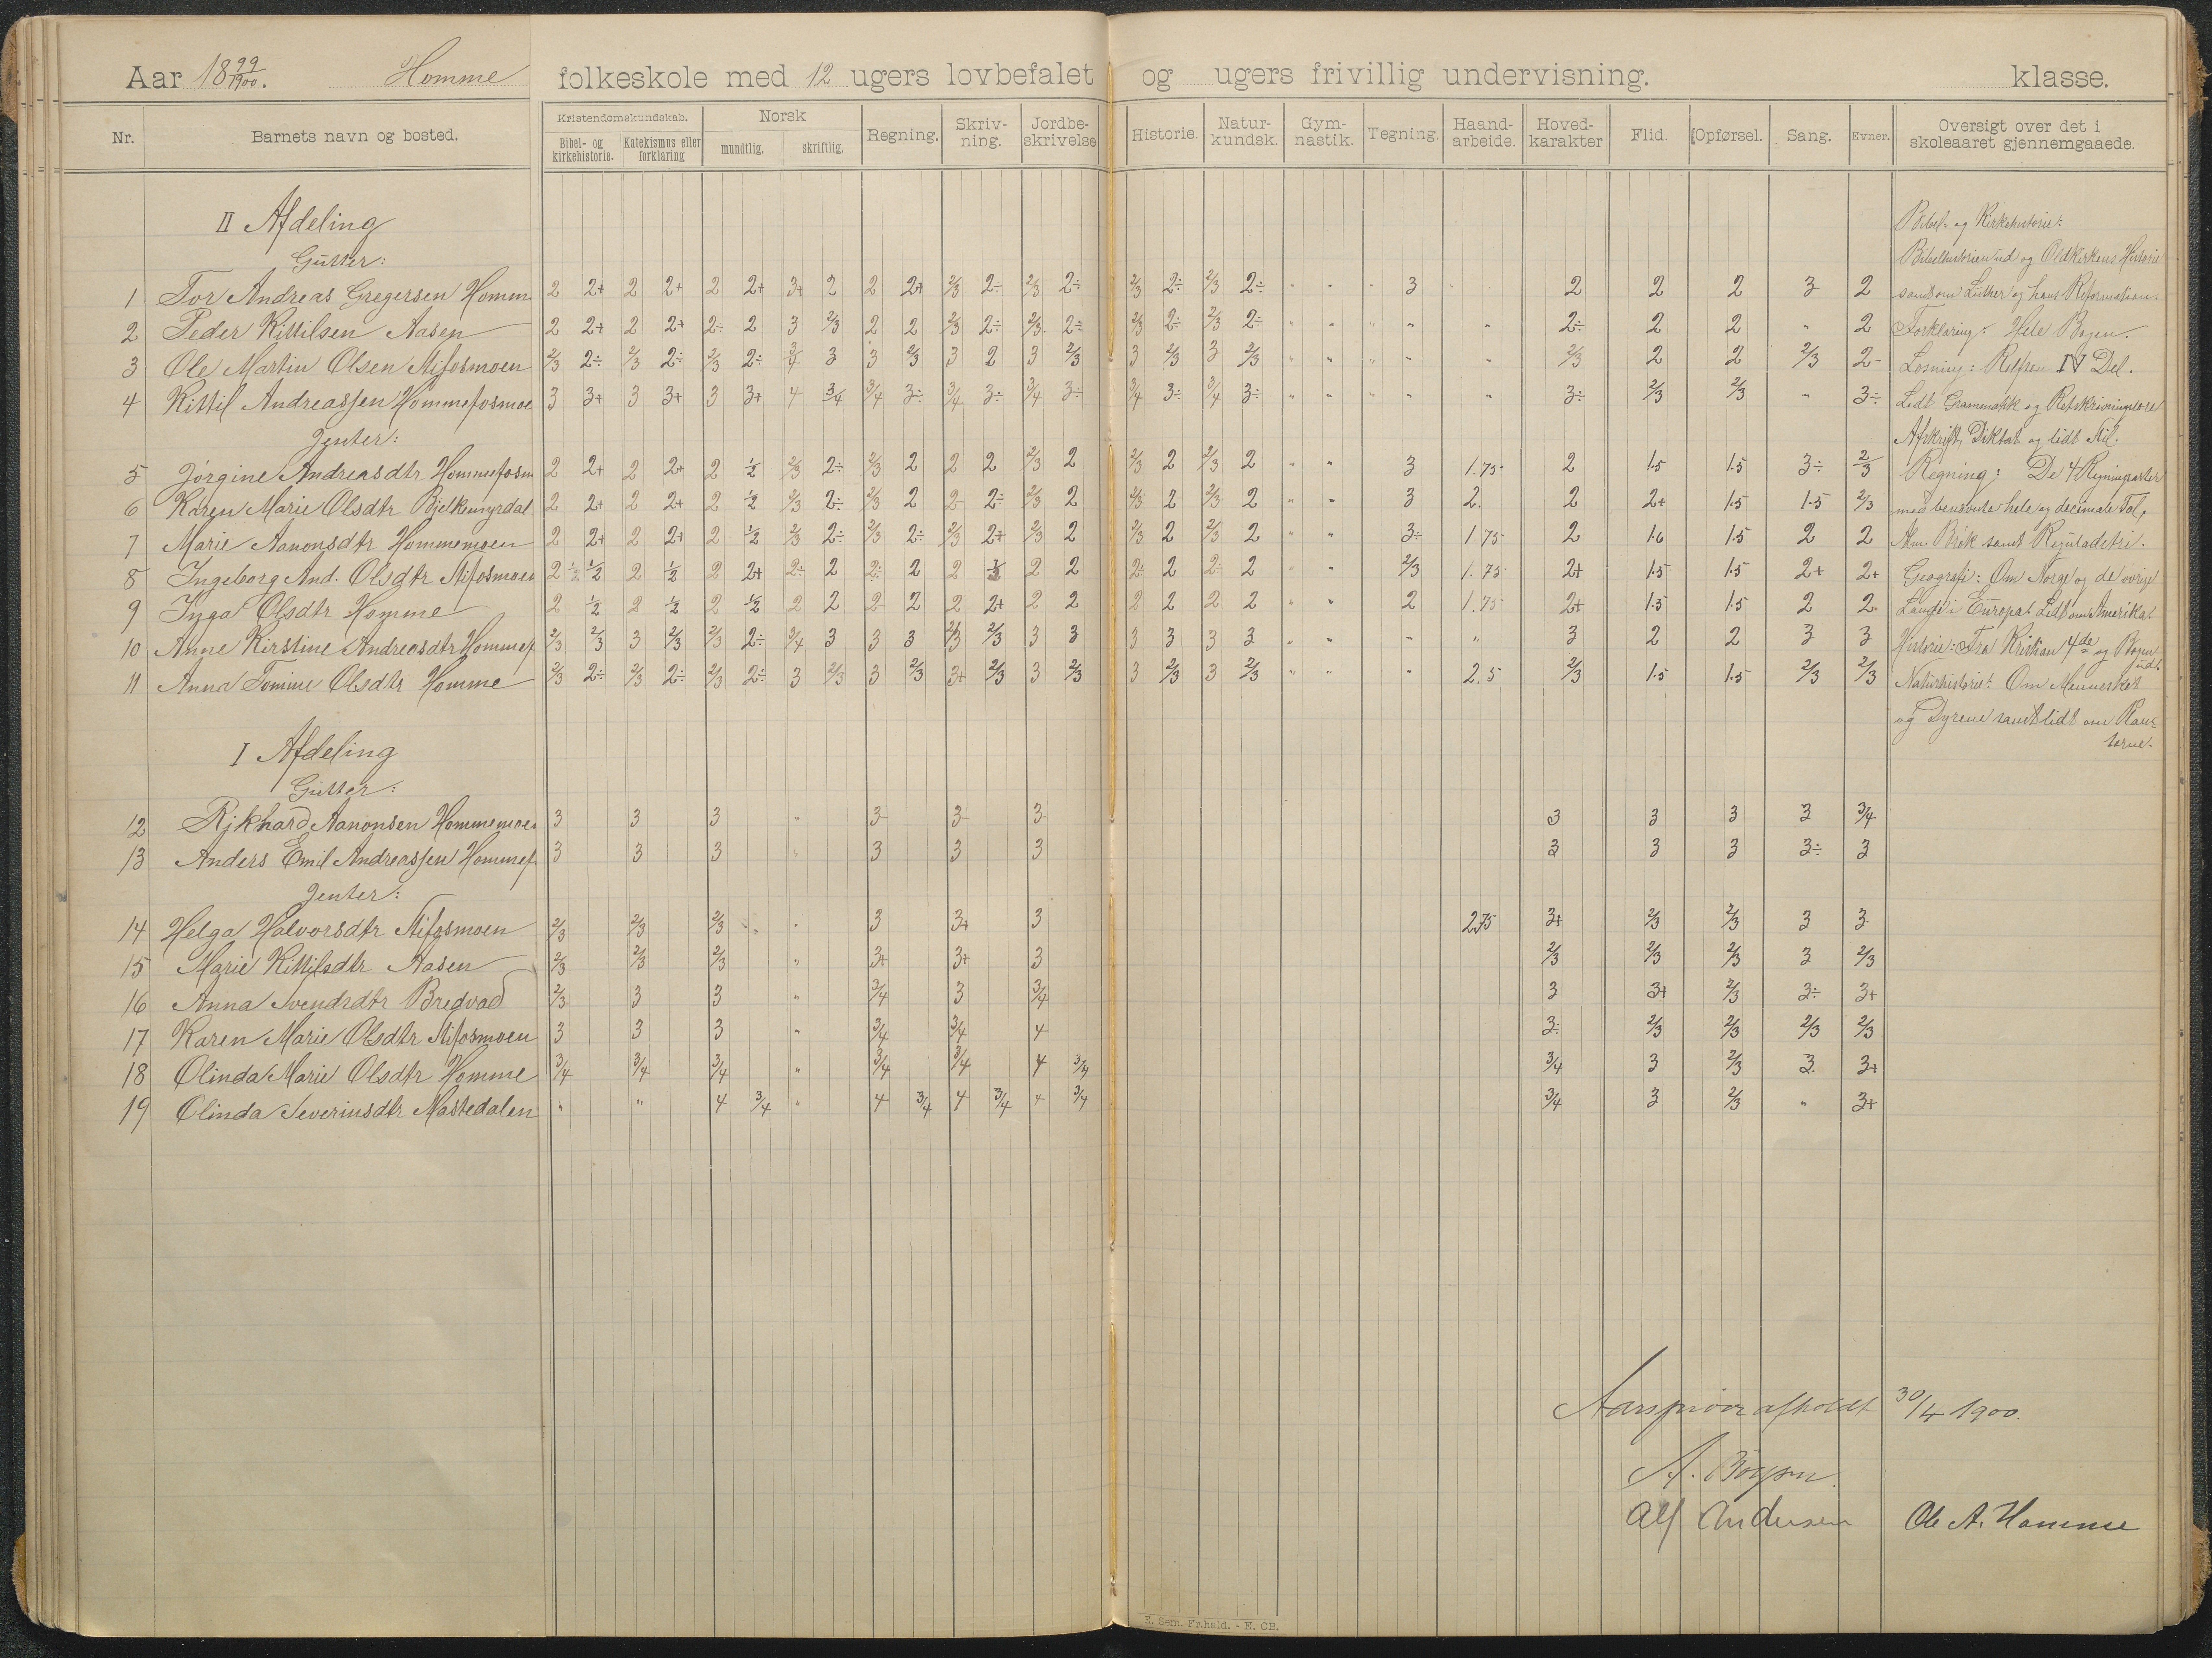 Aar 18 99/1900. Homme folkeskole med 12 ugers lovbefalet og ugers frivillig undervisning. klasse.
Nr. Barnets navn og bosted. Kristendomskundskab. Bibel- og kirkehistorie. Katekismus eller forklaring Norsk mundtlig. skriftlig. Regning. Skriv-ning. Jordbe-skrivelse Historie. Natur-kundsk. Gym-nastik. Tegning. Haand-arbeide. Hoved-karakter Flid. Opførsel. Sang. Evner. Oversigt over det i skoleaaret gjennemgaaede.
II Afdeling
Gutter:
1 Tor Andreas Gregersen Homm 2 2+ 2 2+ 2 2+ 3+ 2 2 2+ 2/3 2÷ 2/3 2÷ 2/3 2÷ 2/3 2÷ " " " 3 2 2 2 3 2
2 Peder Kittilsen Aasen 2 2+ 2 2+ 2÷ 2 3 2/3 2 2 2/3 2÷ 2/3 2÷ 2/3 2÷ 2/3 2÷ " " " " " 2÷ 2 2 " 2
3 Ole Martin Olsen Stifosmoen 2/3 2÷ 2/3 2÷ 2/3 2÷ 3/4 3 3 2/3 3 2 3 2/3 3 2/3 3 2/3 " " " " " 2/3 2 2 2/3 2-
4 Kittil Andreassen Hommefosmoe 3 3+ 3 3+ 3 3+ 4 3/4 3/4 3÷ 3/4 3÷ 3/4 3÷ 3/4 3÷ 3/4 3÷ " " " " " 3÷ 2/3 2/3 " 3÷
Jenter:
5 Jørgine Andreasdtr Hommefosm 2 2+ 2 2+ 2 1/2 2/3 2÷ 2/3 2 2 2 2/3 2 2/3 2 2/3 2 " " 3 1.75 2 1.5 1.5 3÷ 2/3
6 Karen Marie Olsdtr Bjelkemyrdal 2 2+ 2 2+ 2 1/2 2/3 2÷ 2/3 2 2 2÷ 2/3 2 2/3 2 2/3 2 " " 3 2. 2 2+ 1.5 1.5 2/3
7 Marie Aanonsdtr Hommemoen 2 2+ 2 2+ 2 1/2 2/3 2÷ 2/3 2÷ 2/3 2+ 2/3 2 2/3 2 2/3 2 " " 3÷ 1.75 2 1.6 1.5 2 2
8 Ingeborg And. Olsdtr Stifosmoen 2 1/2 2 1/2 2 2+ 2÷ 2 2÷ 2 2 1/3 2 2 2÷ 2 2÷ 2 " " 2/3 1.75 2+ 1.5 1.5 2+ 2+
9 Inga Olsdtr Homme 2 1/2 2 1/2 2 1/2 2 2 2 2 2 2+ 2 2 2 2 2 2 " " 2 1.75 2+ 1.5 1.5 2 2
10 Anne Kirstine Andreasdtr Hommef 2/3 2/3 3 2/3 2/3 2÷ 3/4 3 3 3 2/3 2/3 3 3 3 3 3 3 " " " " 3 2 2 3 3
11 Anna Tomine Olsdtr Homme 2/3 2÷ 2/3 2÷ 2/3 2÷ 3 2/3 3 2/3 3+ 2/3 3 2/3 3 2/3 3 2/3 " " " 2.5 2/3 1.5 1.5 2/3 2/3
Bibel- og Kirkehistorie:
Bibelhistorien ud og Oldkirkens Historie
samt om Luther og hans Reformation.
Forklaring: Hele Bogen.
Læsning: Rolfsen IV Del.
Lidt Grammatik og Retskrivningslære
Afskrift, Diktat og lidt Stil.
Regning: De 4 Regningsarter
med benævnte hele og decimale Tal,
Alm. Brøk samt Reguladetri.
Geografi: Om Norge og de øvrige
Lande i Europa. Lidt om Amerika.
Historie: Fra Kristian 4de og Bogen
ud.
Naturhistorie: Om Mennesket
og Dyrene samt lidt om Plan-
terne.
I Afdeling
Gutter:
12 Rikhard Aanonsen Hommemoen 3 3 3 " 3 3 3 3 3 3 3 3/4
13 Anders Emil Andreassen Hommef 3 3 3 " 3 3 3 3 3 3 3÷ 3
Jenter:
14 Helga Halvorsdtr Stifosmoen 2/3 2/3 2/3 " 3 3+ 3 2.75 3+ 2/3 2/3 3 3
15 Marie Kittilsdtr Aasen 2/3 2/3 2/3 " 3+ 3+ 3 2/3 2/3 2/3 3 2/3
16 Anna Svendsdtr Bredvad 2/3 3 3 " 3/4 3 3/4 3 3+ 2/3 3÷ 3+
17 Karen Marie Olsdtr Stifosmoen 3 3 3 " 3/4 3/4 4 3÷ 2/3 2/3 2/3 2/3
18 Olinda Marie Olsdtr Homme 3/4 3/4 3/4 " 3/4 3/4 4 3/4 3/4 3 2/3 3 3+
19 Olinda Severinsdtr Mastedalen " " 4 3/4 " 4 3/4 4 3/4 4 3/4 3/4 3 2/3 " 3+
Aarsprøve afholdt 30/4 1900.
A. Bøysen.
Alf Andersen Ole A. Homme
E. Sem, Fr.hald. - E. CB.